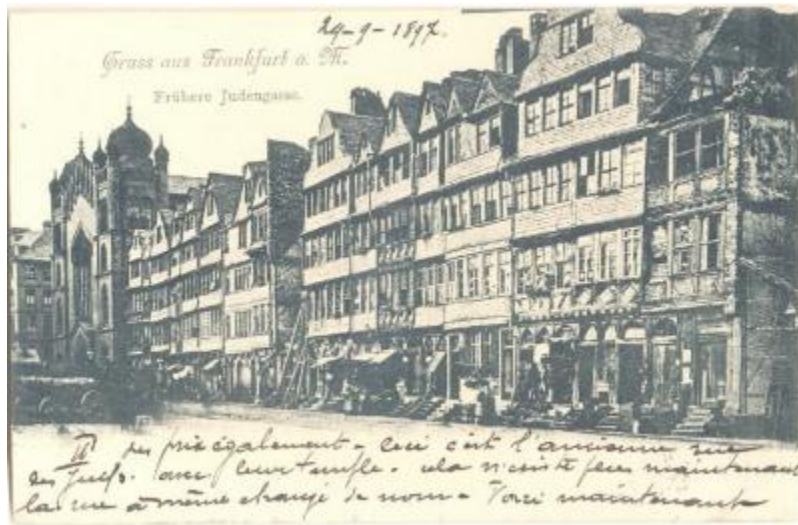 29-9-1897.
Gruss aus Frankfurt a. M.
Frühere Judengasse.
II des prix également - Ceci c'est l'ancienne rue
des Juifs. avec leur temple. cela n'existe plus maintenant
la rue a même changé de nom - Voici maintenant